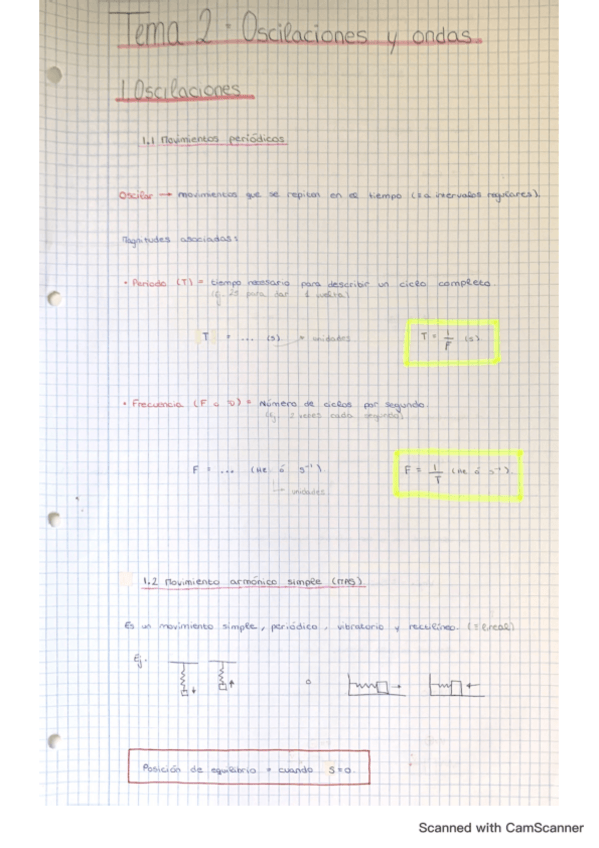 Tema 2 = Oscilaciones y ondas
1 Oscilaciones
1.1 Movimientos periódicos
Oscilar → movimientos que se repiten en el tiempo (= a intervalos regulares).
Magnitudes asociadas:
• Periodo (T) = tiempo necesario para describir un ciclo completo.
(Ej. 2s para dar 1 vuelta)
T = ... (s) = unidades
T = 1/F (s)
• Frecuencia (F o υ) = Número de ciclos por segundo.
(Ej. 2 veces cada segundo)
F = ... (He ó s⁻¹)
↳ unidades
F = 1/T (He ó s⁻¹).
1.2 Movimiento armónico simple (MAS)
Es un movimiento simple, periódico, vibratorio y rectilíneo. (= lineal)
Ej.
o
Posición de equilibrio = cuando S=0.
Scanned with CamScanner